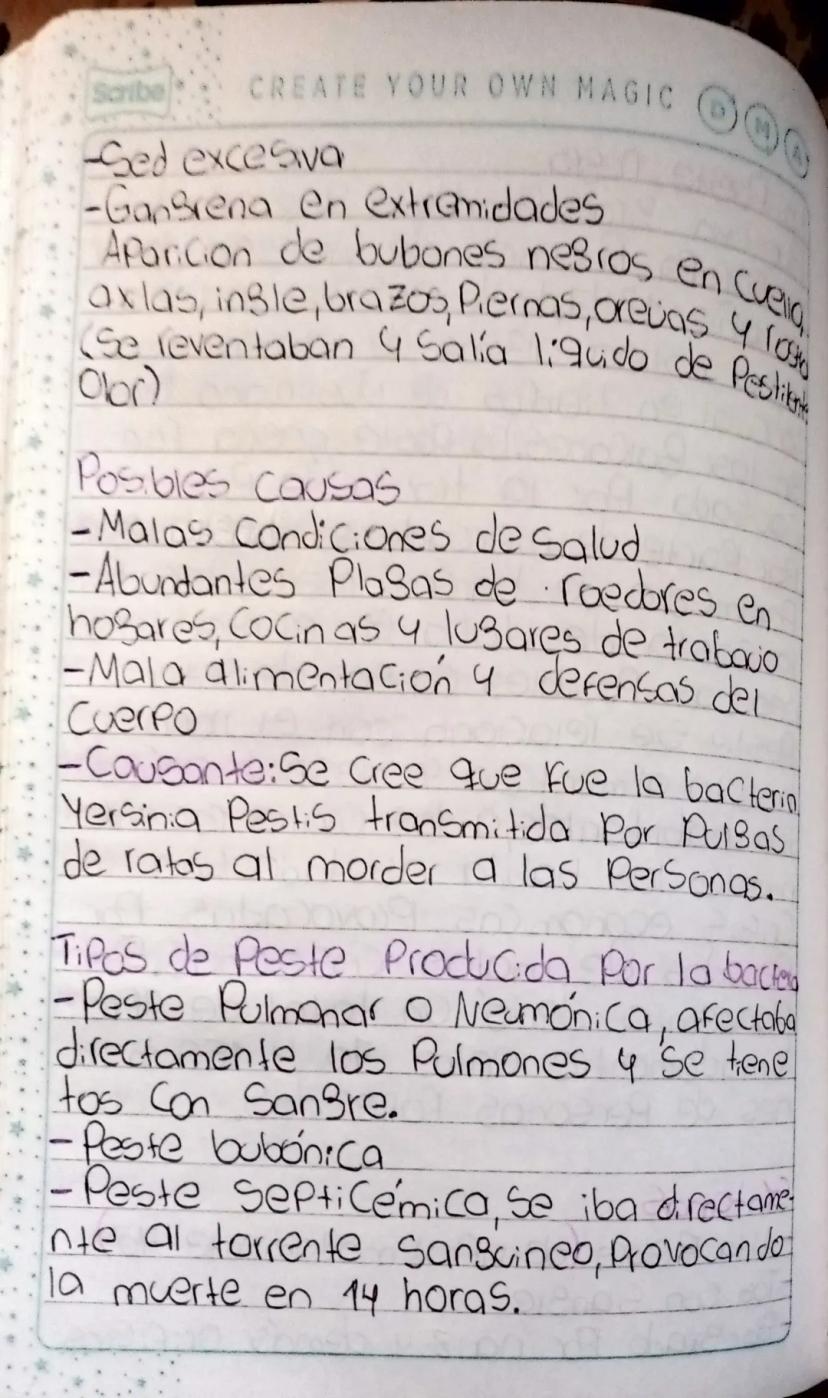 Scribe
CREATE YOUR OWN MAGIC D M A
-Sed excesiva
-Gangrena en extremidades
Aparicion de bubones negros en cuello,
axlas, ingle, brazos, Piernas, orejas y rostro
(Se reventaban y salía líquido de Pestilente
Olor)
Posibles causas
-Malas condiciones de salud
-Abundantes Plagas de roedores en
hogares, cocinas y lugares de trabajo
-Mala alimentación y defensas del
cuerpo
-Causante: Se cree que fue la bacteria
Yersinia Pestis transmitida Por Pulgas
de ratas al morder a las Personas.
Tipos de Peste Producida Por la bacteria
-Peste Pulmonar o Neumónica, afectaba
directamente los Pulmones y se tiene
tos con sangre.
-Peste bubónica
-Peste septicémica, se iba directame-
nte al torrente sanguineo, Provocando
la muerte en 14 horas.